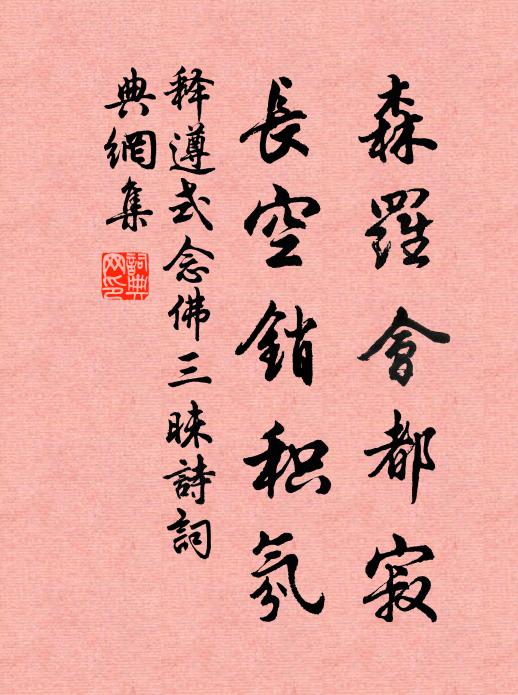 森羅會都寂
長空銷积氛
释遵式念佛三昧詩詞
典網集
詞典網印